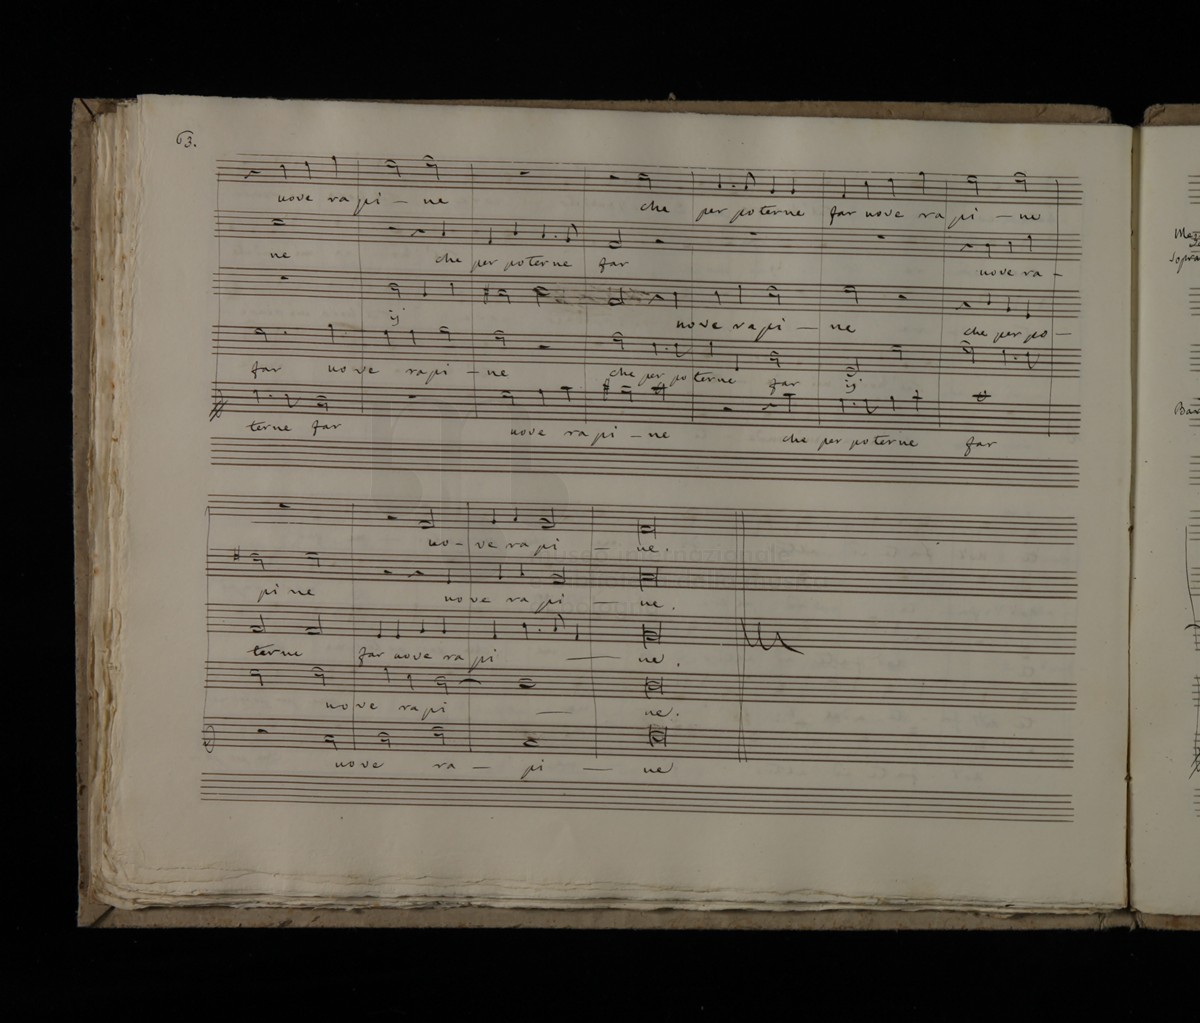 63.
nove rapi - ne che per poterne far nove rapi - ne
ne che per poterne far nove ra -
ij nove rapi - ne che per po -
far nove rapi - ne che per poterne far ij
terne far nove rapi - ne che per poterne far
no - ve rapi - ne.
pine nove rapi - ne.
terne far nove rapi - ne.
nove rapi - ne.
nove ra - pi - ne
museo internazionale